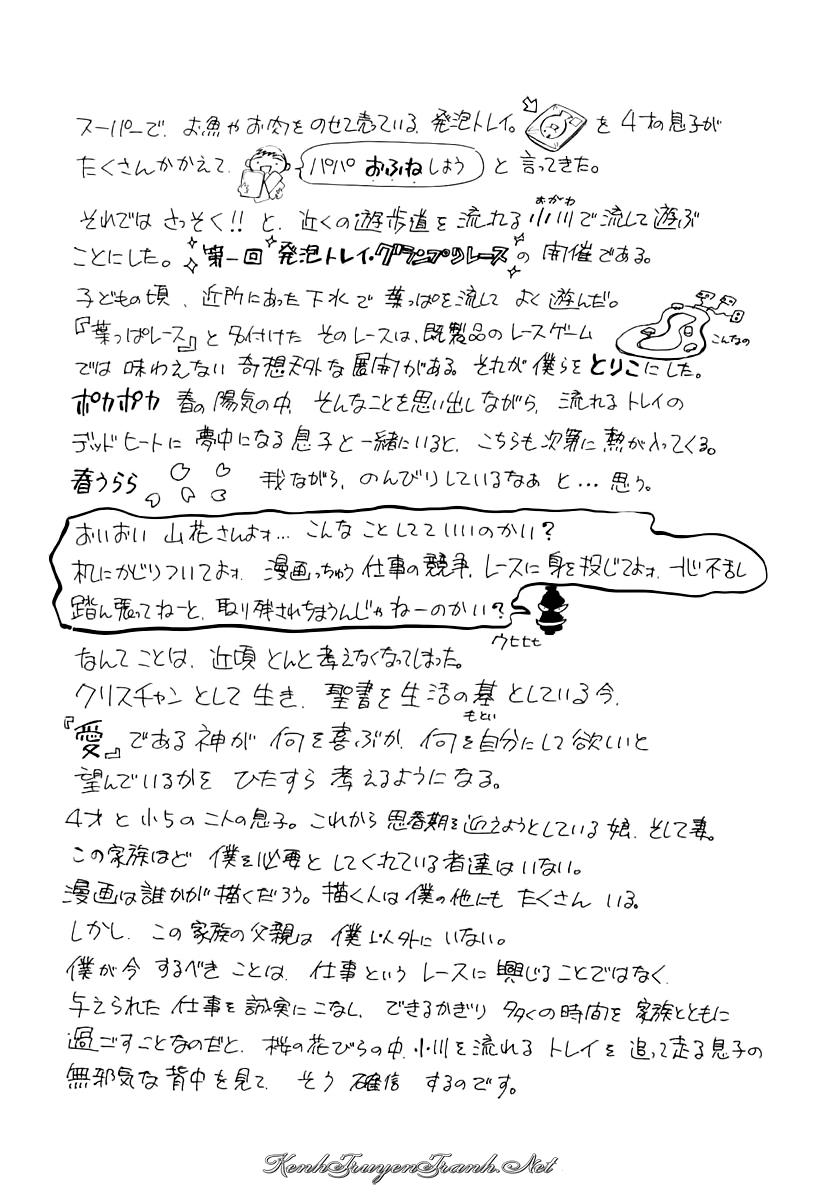 スーパーで、お魚やお肉をのせて売ている、発泡トレイ。を4才の息子が
たくさんかかえて、パパ おふねしよう と言ってきた。
おがわ
それでは さっそく!! と、近くの遊歩道を流れる小川で流して遊ぶ
ことにした。第一回 発泡トレイ・グランプリレースの開催である。
子どもの頃、近所にあった下水で葉っぱを流して よく遊んだ。
『葉っぱレース』と名付けた そのレースは、既製品のレースゲーム
こんなの
では味わえない奇想天外な展開がある。それが僕らをとりこにした。
ポカポカ 春の陽気の中、そんなことを思い出しながら、流れるトレイの
デッドヒートに夢中になる息子と一緒にいると、こちらも次第に熱が入ってくる。
春うらら 我ながら、のんびりしているなぁ と…思う。
おいおい 山花さんよォ… こんな ことしてていいのかい?
机にかじりついてよォ、漫画っちゅう仕事の競争、レースに身を投じてよォ、一心不乱
踏ん張ってねーと、取り残されちまうんじゃねーのかい?
ウヒヒヒ
なんてことは、近頃とんと考えなくなってしまった。
クリスチャンとして生き、聖書を生活の基としている今、
もとい
『愛』である神が 何を喜ぶか、何を自分にして欲しいと
望んでいるかを ひたすら 考えるようになる。
4才と小5の二人の息子。これから思春期を迎えようとしている娘、そして妻。
この家族ほど 僕を必要としてくれている者達はいない。
漫画は誰かが描くだろう。描く人は僕の他にも たくさん いる。
しかし、この家族の父親は 僕以外に いない。
僕が今 するべき ことは、仕事という レースに興じることではなく、
与えられた 仕事を誠実にこなし、できるかぎり 多くの時間を 家族とともに
過ごすことなのだと、桜の花びらの中、小川を流れる トレイを 追って走る息子の
無邪気な背中を見て、そう 確信 するのです。
KenhTruyenTranh.Net